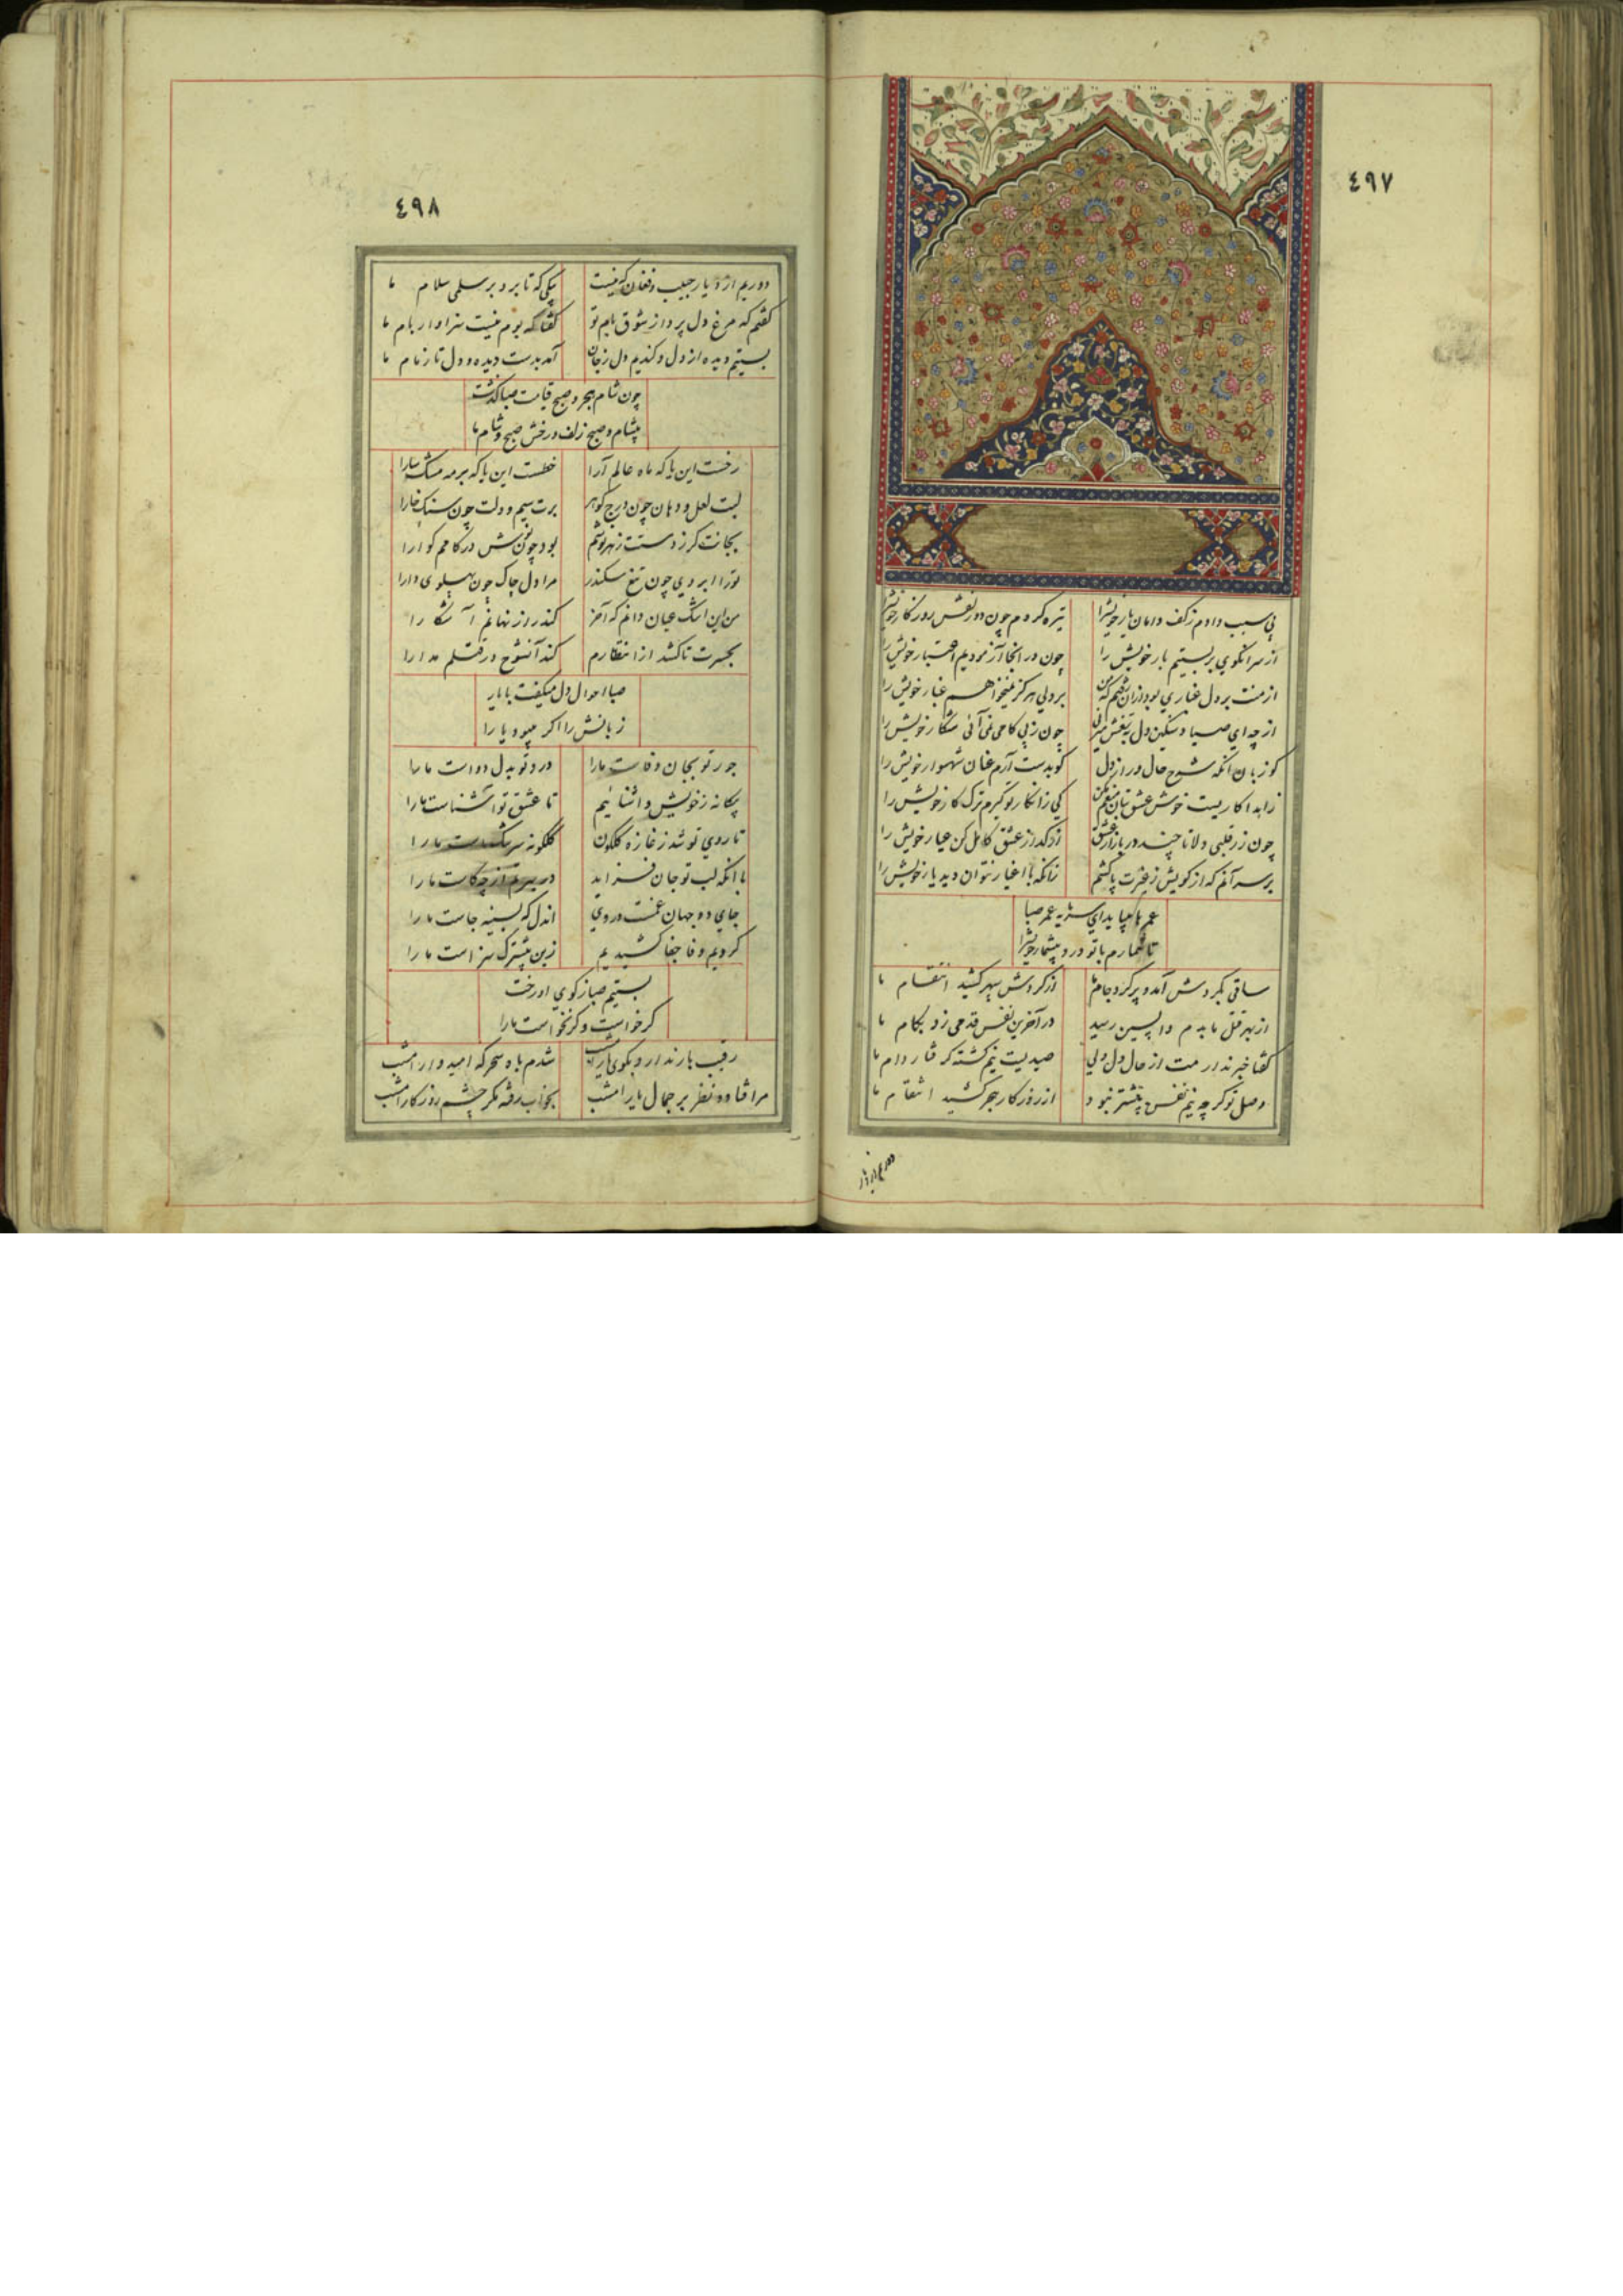 ٤٩٧
بی سبب دادم زکف دامان یار خویش را تیره کردم چون دو زلفش روزکار خویش را
از سر انکوی بربستیم بار خویش را چون در انجا آزمودیم اعتبار خویش را
از منت بر دل غباری بود ازان رفتم که من بر دلی هرکز نمیخواهم غبار خویش را
از چه ای صیاد سنکین دل بتیغش میزنی چون ز پی کامی نمی آئی شکار خویش را
کو زبان انکه شرح حال در از دل کو بدست آرم عنان شهسوار خویش را
زاهدا کاریست خوش عشق بتان منعم مکن کی ز انکار تو کیرم ترک کار خویش را
چون زر قلبی دلا تا چند در بازار عشق از کداز عشق کامل کن عیار خویش را
بر سر آنم که از کویش ز غیرت پا کشم زانکه با اغیار نتوان دید یار خویش را
عمر ها بپاید ای سرمایه عمر صبا
تا شمارم با تو درد بیشمار خویش را
ساقی بکردش آمد و پر کرد جام ما از کردش سپهر کشید انتقام ما
از بهر قتل ما بدم واپسین رسید در آخرین نفس قدحی زد بکام ما
کفتا خبر نداردمت از حال دل ولی صیدیست نیم کشته کرفتار دام ما
وصل تو کرچه نیم نفس بیشتر نبود از روزکار هجر کشید انتقام ما
دوریم از دیار
٤٩٨
دوریم از دیار حبیب و فغان که نیست پیکی که تا برد بر سلمی سلام ما
کفتم که مرغ دل پرد از شوق بام تو کفتا که بوم نیست سزاوار بام ما
بستیم دیده از دل و کندیم دل ز جان آمد بدست دیده و دل تا زمام ما
چون شام هجر و صبح قیامت صبا کذشت
بیشام و صبح زلف و رخش صبح و شام ما
رخست این یا که ماه عالم آرا خطست این یا که بر مه مشک سارا
لبت لعل و دهان چون درج کوهر برت سیم و دلت چون سنک خارا
بجانت کر ز دستت زهر نوشم بود چون نوش در کامم کوارا
تو را ابروی چون تیغ سکندر مرا دل چاک چون پهلوی دارا
من این اشک عیان دانم که آخر کند راز نهانم آشکارا
بحسرت تا کشد از انتظارم کند آنشوخ در قتلم مدارا
صبا احوال دل میکفت با یار
زبانش را اکر میبود یارا
جور تو بجان وفاست ما را درد تو بدل دواست ما را
بیکانه ز خویش و اشنائیم تا عشق تو آشناست ما را
تا روی تو شد ز غازه کلکون کلکونه سرشک ماست ما را
با انکه لب تو جان فزاید در بیم از چه کاست ما را
جای دو جهان غمت در وی اندل که بسینه جاست ما را
کردیم وفا جفا کشیدیم زین بیشترک سزاست ما را
بستیم صبا ز کوی او رخت
کر خواست و کر نخواست ما را
رقیب بار ندارد بکوی یار امشب شدم بآه سحرکه امیدوار امشب
مرا فتاده نظر بر جمال یار امشب بخواب رفته مکر چشم روزکار امشب